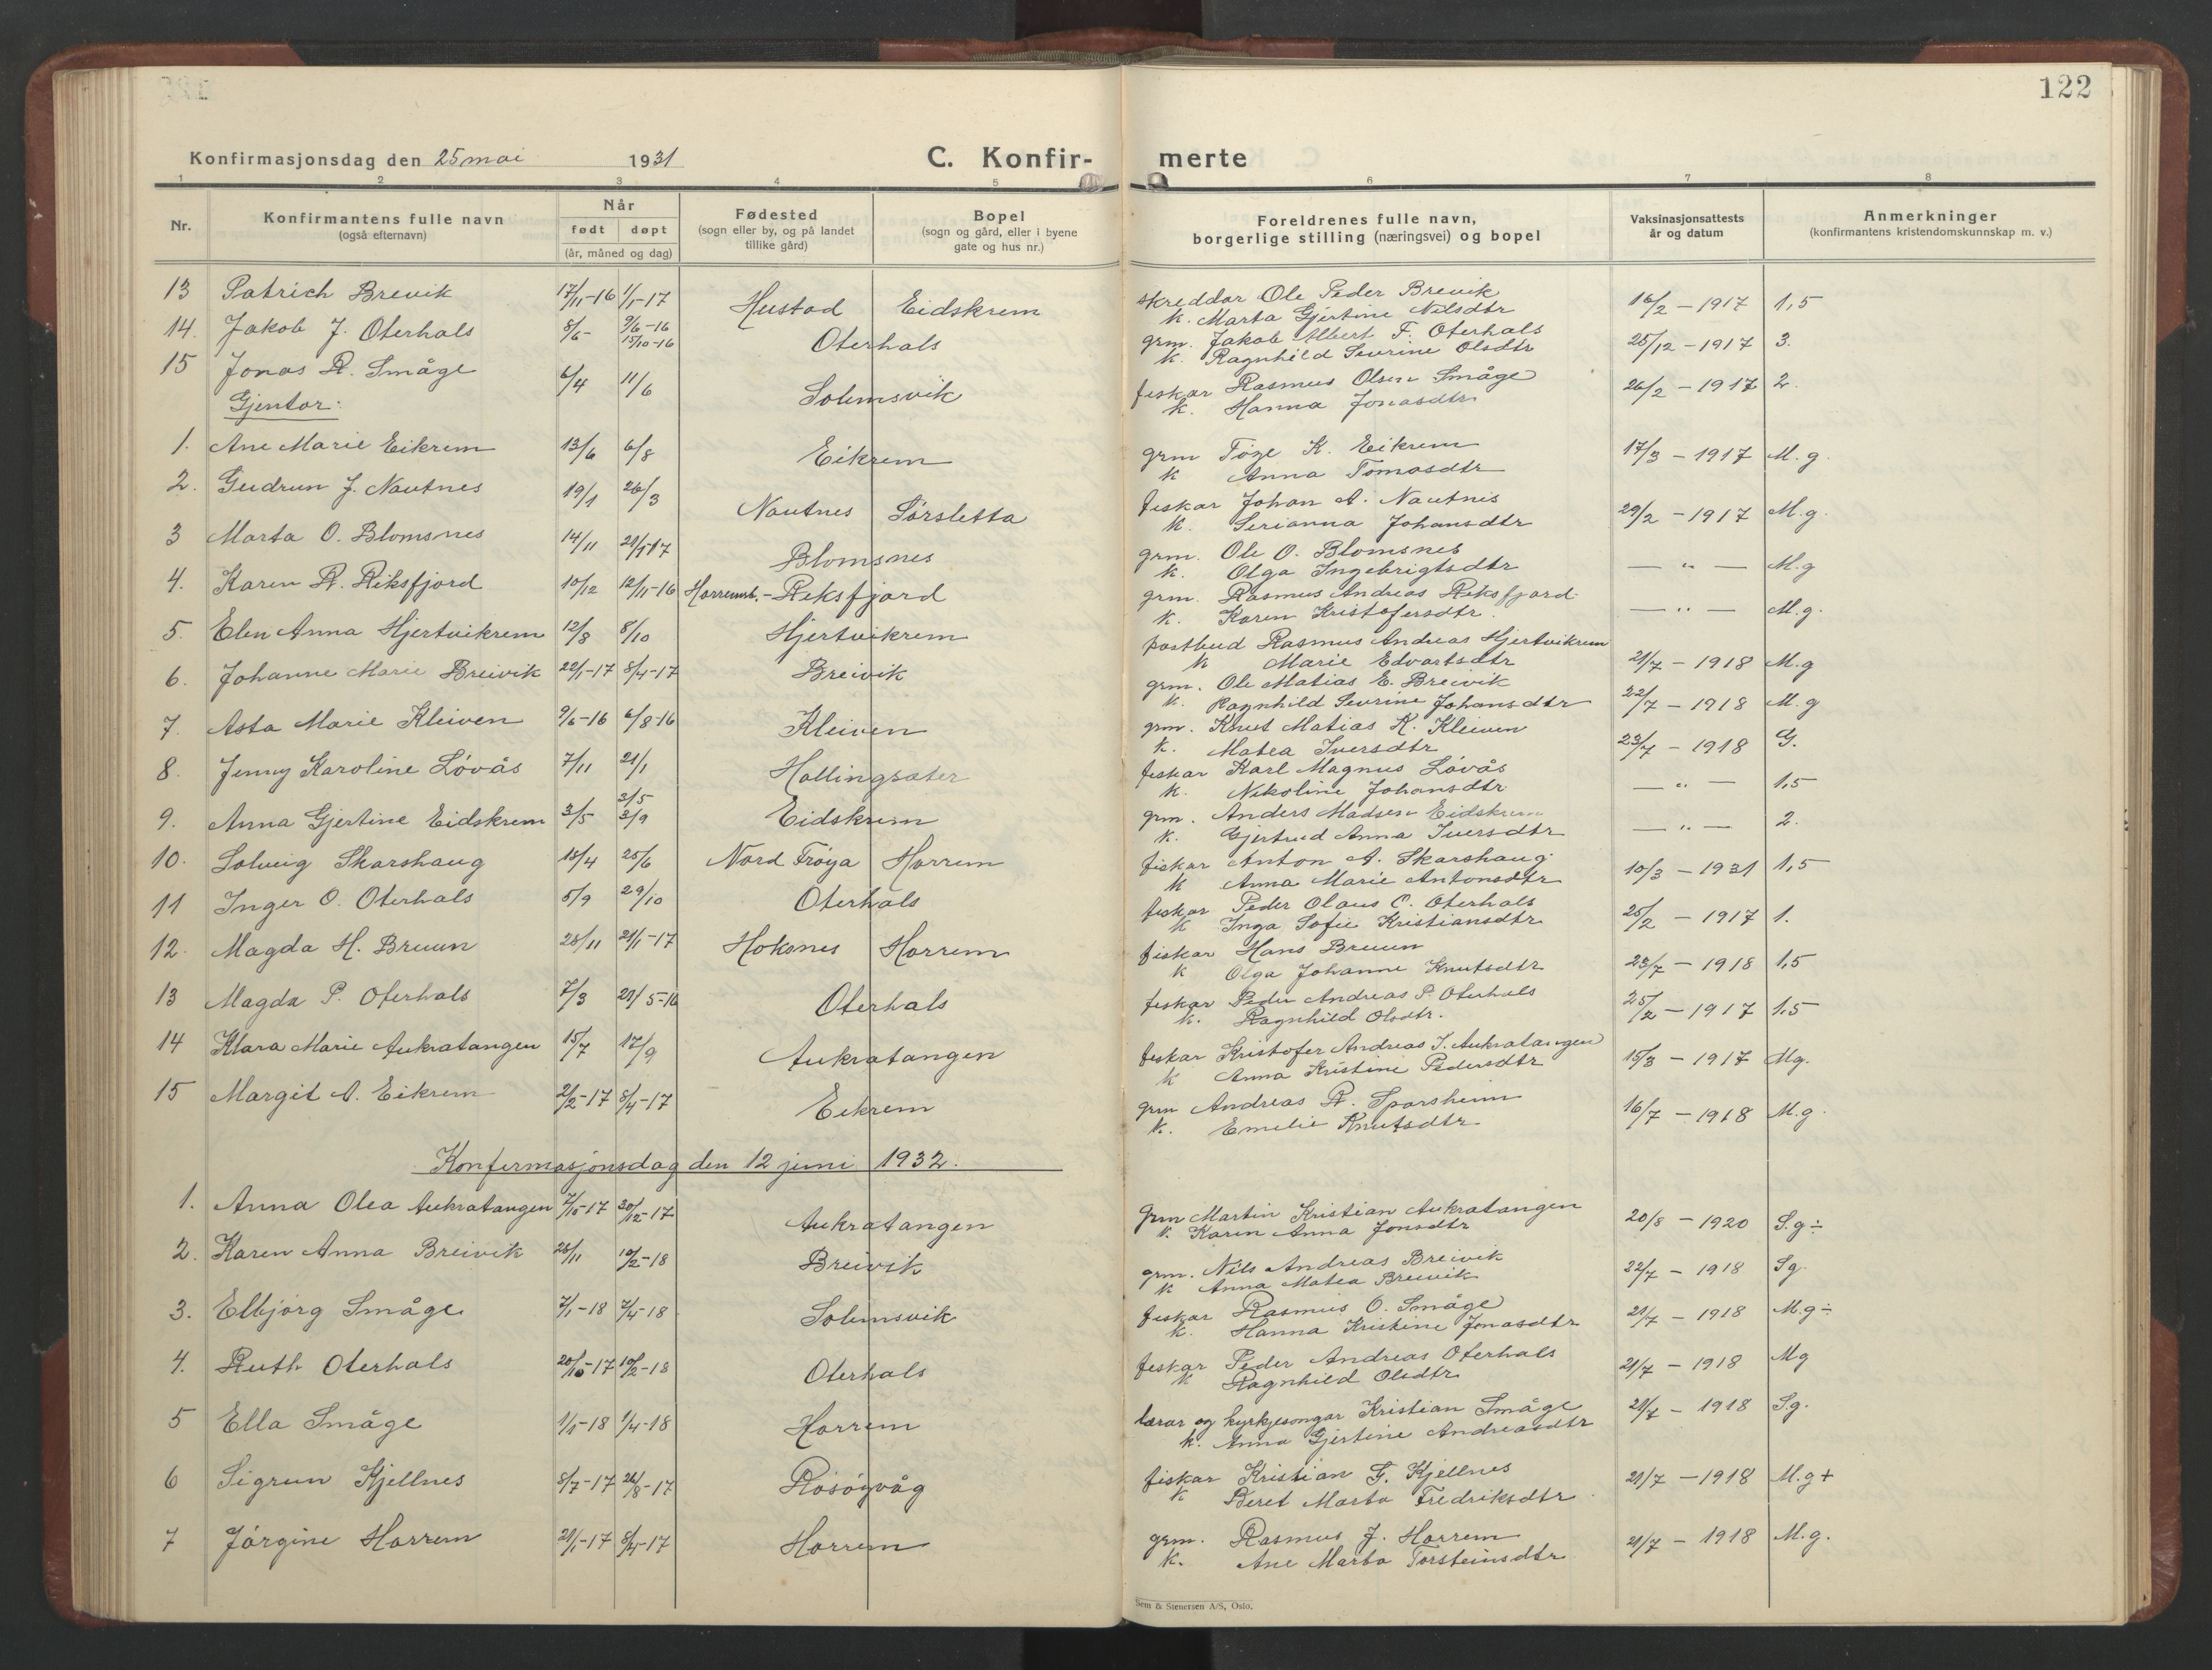 122
Konfirmasjonsdag den 25 mai 1931
C. Konfir-
merte
1 2 3 4 5 6 7 8
Nr.
Konfirmantens fulle navn
(også efternavn)
Når
født døpt
(år, måned og dag)
Fødested
(sogn eller by, og på landet
tillike gård)
Bopel
(sogn og gård, eller i byene
gate og hus nr.)
Foreldrenes fulle navn,
borgerlige stilling (næringsvei) og bopel
Vaksinasjonsattests
år og datum
Anmerkninger
(konfirmantens kristendomskunnskap m. v.)
13 Patrich Brevik 17/11-16 1/1-17 Hustad Eidskrem skreddar Ole Peder Brevik 16/2 - 1917 1,5
k. Marta Gjertine Nilsdtr
14. Jakob J. Oterhals 8/6- 9/6-16 15/10-16 Oterhals grm. Jakob Albert F. Oterhals 28/12 - 1917 3.
k. Ragnhild Sevrine Olsdtr
15 Jonas R. Småge 6/4 11/6 Solemsvik fiskar Rasmus Olsen Småge 26/2 - 1917 2.
k. Hanna Jonasdtr
Gjentor:
1. Ane Marie Eikrem 13/6 6/8 Eikrem grm Tøge K. Eikrem 17/3 - 1917 M.g.
k Anna Tomasdtr
2. Gudrun J. Nautnes 19/1 26/3 Nautnes Sørsletta fiskar Johan A. Nautnes 29/2 - 1917 M.g.
k. Serianna Johansdtr
3 Marta O. Blomsnes 14/11 21/1-17 Blomsnes grm. Ole O. Blomsnes — " — M.g
k. Olga Ingebrigtsdtr
4. Karen R. Reksfjord 10/12 12/11-16 Harremsb.- Reksfjord grm. Rasmus Andreas Reksfjord — " — M.g.
k. Karen Kristofersdtr.
5. Elen Anna Hjertvikrem 12/8 8/10 Hjertvikrem postbud Rasmus Andreas Hjertvikrem 21/7 - 1918 M.g
k Marie Edvartsdtr
6. Johanne Marie Breivik 22/1-17 8/4-17 Breivik grm. Ole Matias E. Breivik 22/7 - 1918 M.g
k. Ragnhild Sevrine Johansdtr
7. Asta Marie Kleiven 9/6-16 6/8-16 Kleiven grm. Knut Matias K. Kleiven 23/7 - 1918 G.
k. Matea Iversdtr
8. Jenny Karoline Løvås 7/11 21/1 Hallingsæter fiskar Karl Magnus Løvås — " — 1,5
k. Nikoline Johansdtr
9. Anna Gjertine Eidskrem 3/5 3/5 3/9 Eidskrem grm. Anders Madsen Eidskrem — " — 2.
k. Gjertrud Anna Iversdtr
10. Solveig Skarshaug 18/4 25/6 Nord Frøya Harrem fiskar Anton A. Skarshaug 10/3 - 1931 1,5
k Anna Marie Antonsdtr
11 Inger O. Oterhals 5/9 29/10 Oterhals fiskar Peder Olaus C. Oterhals 25/2 - 1917 1.
k Inga Sofie Kristiansdtr
12. Magda H. Bruun 28/11 21/1-17 Hoksnes Harrem fiskar Hans Bruun 23/7 - 1918 1,5
k Olga Johanne Knutsdtr
13 Magda P. Oterhals 7/3 21/5-16 Oterhals fiskar Peder Andreas P. Oterhals 25/2 - 1917 1,5
k. Ragnhild Olsdtr.
14 Klara Marie Aukratangen 15/7 17/9 Aukratangen fiskar Kristofer Andreas I. Aukratangen 15/3 - 1917 Mg.
k Anna Kristine Pedersdtr
15 Margit A. Eikrem 2/2-17 8/4-17 Eikrem grm Andreas R. Sparsheim 16/7 - 1918 M.g.
k. Emelie Knutsdtr
Konfermasjonsdag den 12 juni 1932.
1. Anna Olea Aukratangen 7/10-17 30/12-17 Aukratangen grm Martin Kristian Aukratangen 20/8 - 1920 S.g÷
k. Karen Anna Jonsdtr
2. Karen Anna Breivik 28/11 10/2-18 Breivik grm. Nils Andreas Breivik 22/7 - 1918 Sg.
k Anna Matea Breivik
3. Elbjørg Småge 7/1-18 7/4-18 Solemsvik fiskar Rasmus O. Småge 21/7 - 1918 M.g÷
k. Hanna Kristine Jonasdtr
4. Ruth Oterhals 20/10-17 10/2-18 Oterhals fiskar Peder Andreas Oterhals 21/7 - 1918 Mg
k Ragnhild Olsdtr
5 Ella Småge 1/1-18 1/4-18 Harrem lærar og kyrkjesongar Kristian Småge 21/7 - 1918 S.g.
k. Anna Gjertine Andreasdtr
6 Sigrun Kjellnes 8/7-17 26/8-17 Røsøyvåg fiskar Kristian F. Kjellnes 21/7 - 1918 M.g+
k Beret Marta Fredriksdtr
7 Jørgine Harrem 21/1-17 8/4-17 Harrem grm. Rasmus J. Harrem 21/7 - 1918 M.g.
k. Ane Marta Torsteinsdtr
Sem & Stenersen A/S, Oslo.